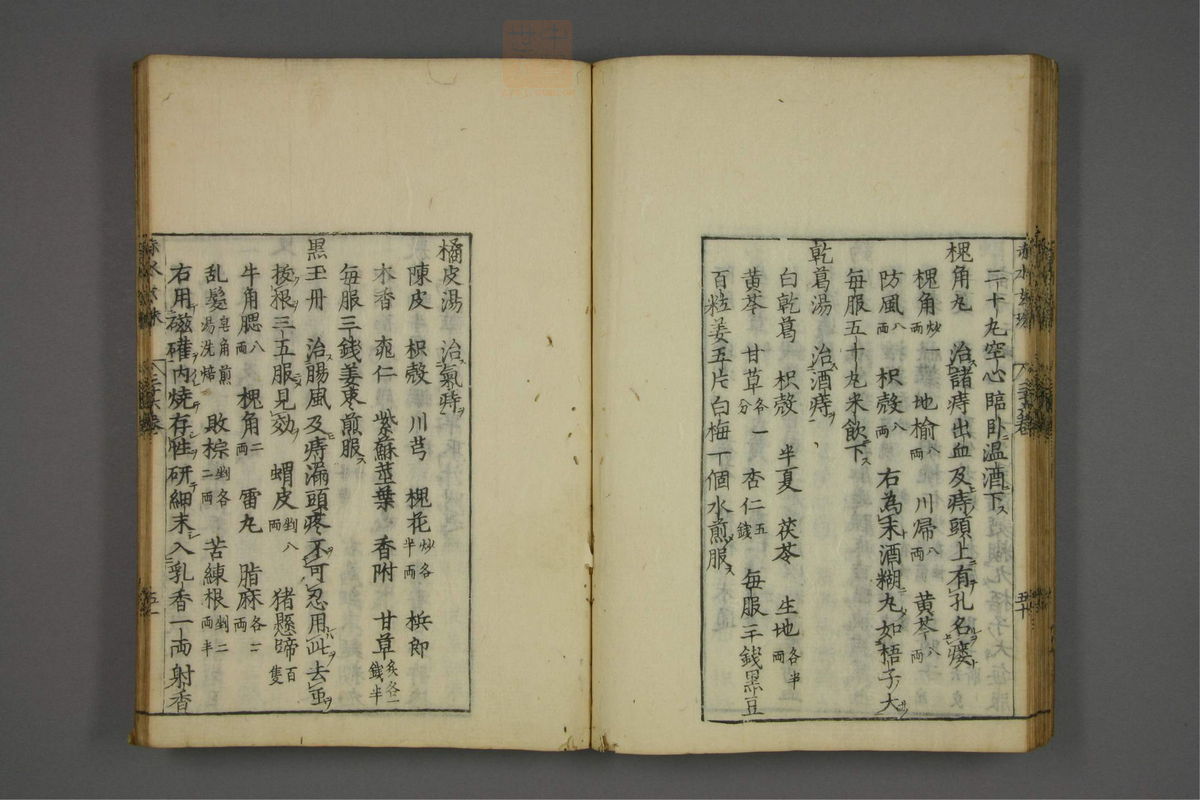 二十丸空心臨卧温酒下ス
槐角丸　治諸痔出血及痔頭上有孔名瘻
槐角炒一両　地榆八両　川帰八両　黄芩八両
防風八両　枳殻八両　右為末酒糊丸如梧子大
毎服五十丸米飲下ス
乾葛湯　治酒痔ヲ
白乾葛　枳殻　半夏　茯苓　生地各半両
黄芩　甘草各一分　杏仁五錢　毎服三錢黒豆
百粒姜五片白梅一個水煎服ス
橘皮湯　治氣痔ヲ
陳皮　枳殻　川芎　槐花炒各半両　梹郎
木香　桃仁　紫蘇莖葉　香附　甘草炙各一錢半
毎服三錢姜棗煎服ス
黒玉丹　治腸風及痔漏頭疼不可忍用此去虫ヲ
後根三五服見効　蝟皮剉八両　猪懸蹄百隻
牛角腮八両　槐角二両　雷丸　脂麻各一両
乱髪皂角煎湯洗焙　敗棕剉各二両　苦練根剉二両半
右用磁確内焼存性研細末入乳香一両射香
五十